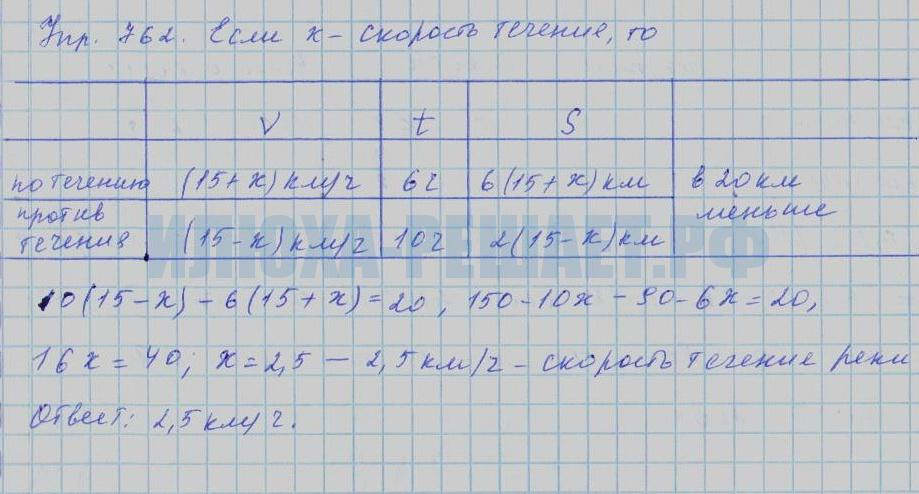 Упр. 762. Если x - скорость течение, то
V t S
по течению (15+x) км/ч 6ч 6(15+x) км в 20 км
против меньше
течения (15-x) км/ч 10ч 2(15-x) км
ИЛЮХА-РЕШАЕТ.РФ
10(15-x)-6(15+x)=20, 150-10x-90-6x=20,
16x=40; x=2,5 — 2,5 км/ч - скорость течение реки
Ответ: 2,5 км/ч.